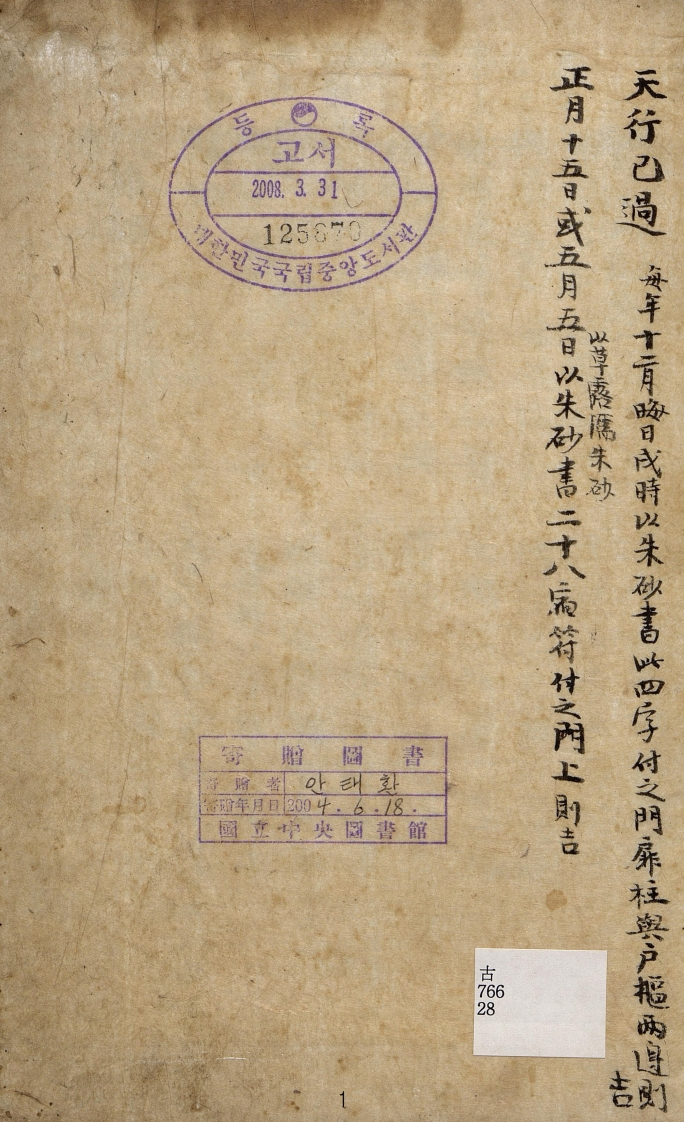 天行已過 每年十二月晦日戌時以朱砂書此四字付之門扉柱與戶樞兩邊則吉
以草露濡朱砂
正月十五日或五月五日以朱砂書二十八宿符付之門上則吉
등록
고서
2008. 3. 31
125670
대한민국국립중앙도서관
寄贈圖書
寄贈者 안태환
寄贈年月日 2004.6.18.
國立中央圖書館
古
766
28
1